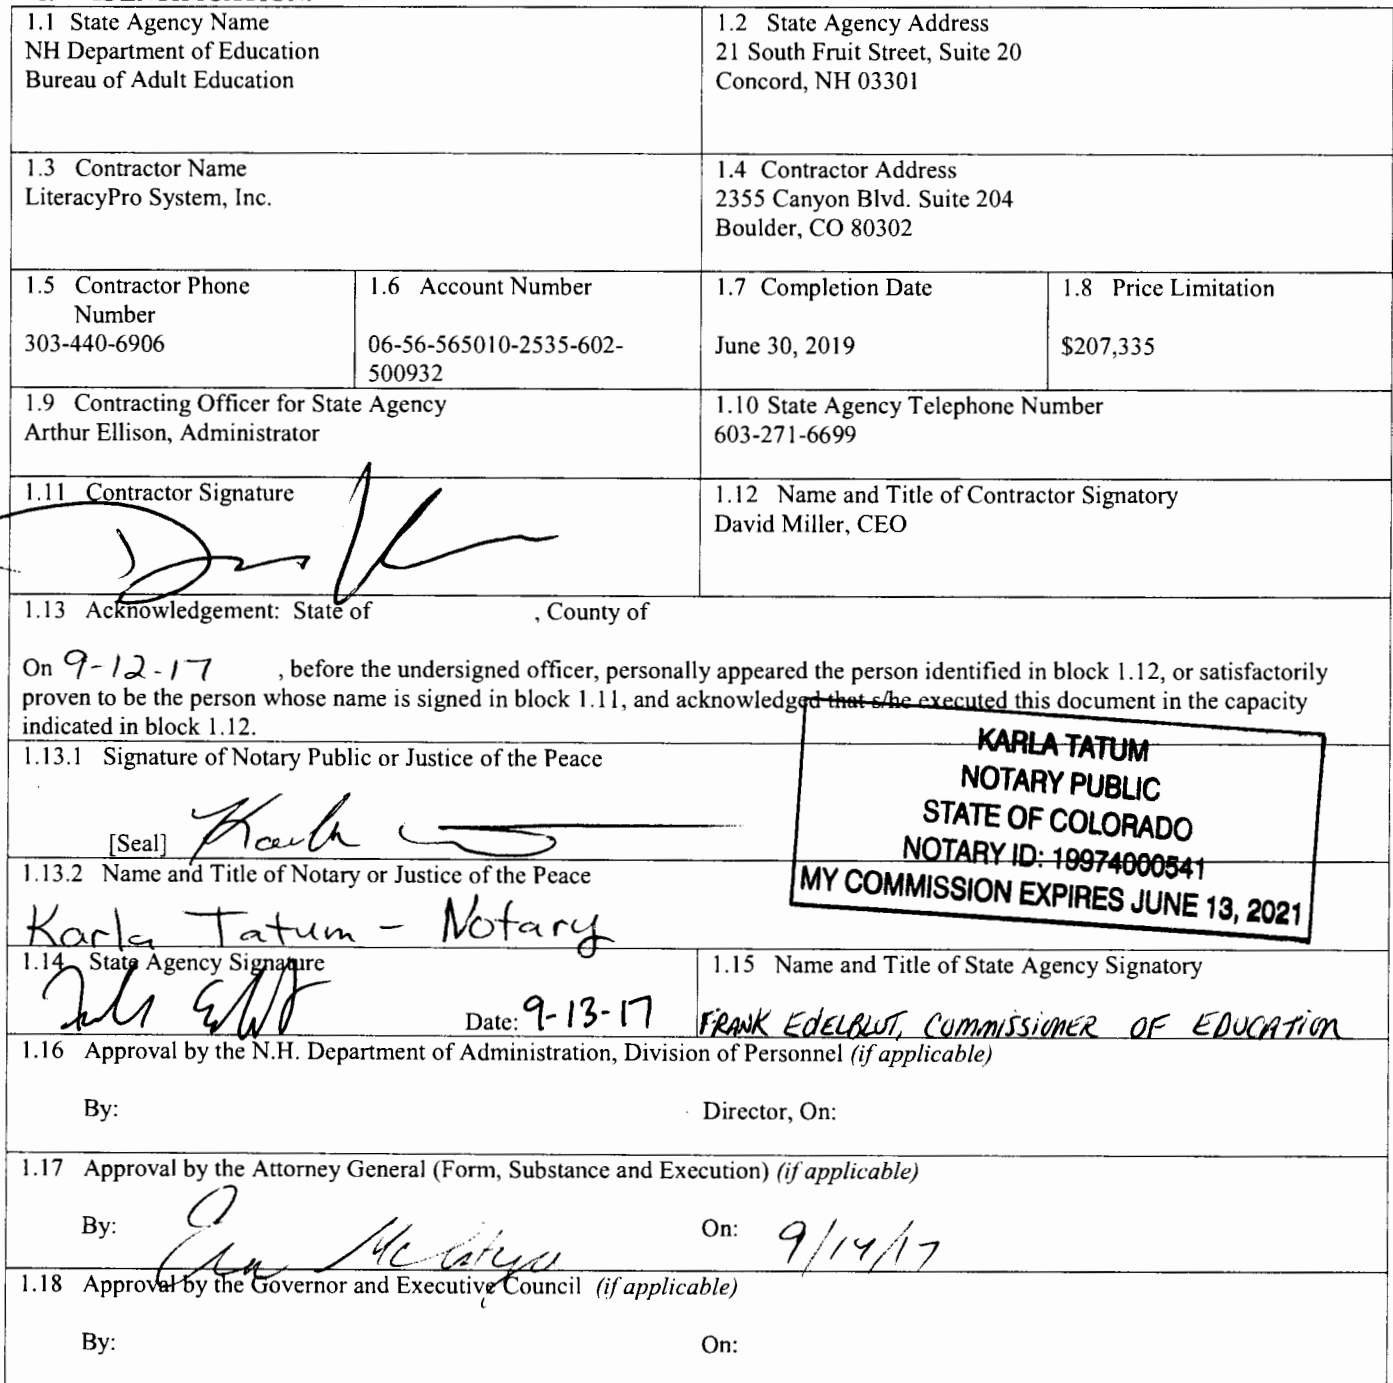 1.1 State Agency Name
NH Department of Education
Bureau of Adult Education
1.2 State Agency Address
21 South Fruit Street, Suite 20
Concord, NH 03301
1.3 Contractor Name
LiteracyPro System, Inc.
1.4 Contractor Address
2355 Canyon Blvd. Suite 204
Boulder, CO 80302
1.5 Contractor Phone
Number
303-440-6906
1.6 Account Number
06-56-565010-2535-602-
500932
1.7 Completion Date
June 30, 2019
1.8 Price Limitation
$207,335
1.9 Contracting Officer for State Agency
Arthur Ellison, Administrator
1.10 State Agency Telephone Number
603-271-6699
1.11 Contractor Signature
1.12 Name and Title of Contractor Signatory
David Miller, CEO
1.13 Acknowledgement: State of , County of
On 9-12-17 , before the undersigned officer, personally appeared the person identified in block 1.12, or satisfactorily
proven to be the person whose name is signed in block 1.11, and acknowledged that s/he executed this document in the capacity
indicated in block 1.12.
1.13.1 Signature of Notary Public or Justice of the Peace
[Seal] Karla
KARLA TATUM
NOTARY PUBLIC
STATE OF COLORADO
NOTARY ID: 19974000541
MY COMMISSION EXPIRES JUNE 13, 2021
1.13.2 Name and Title of Notary or Justice of the Peace
Karla Tatum - Notary
1.14 State Agency Signature
Date: 9-13-17
1.15 Name and Title of State Agency Signatory
FRANK EDELBLUT, COMMISSIONER OF EDUCATION
1.16 Approval by the N.H. Department of Administration, Division of Personnel (if applicable)
By: Director, On:
1.17 Approval by the Attorney General (Form, Substance and Execution) (if applicable)
By: On: 9/14/17
1.18 Approval by the Governor and Executive Council (if applicable)
By: On: